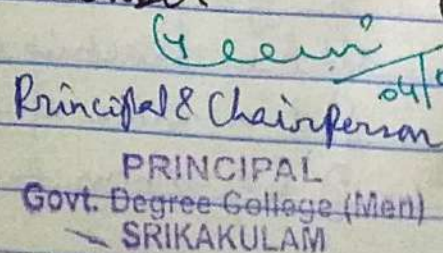 04/
Principal & Chairperson
PRINCIPAL
Govt. Degree College (Men)
SRIKAKULAM